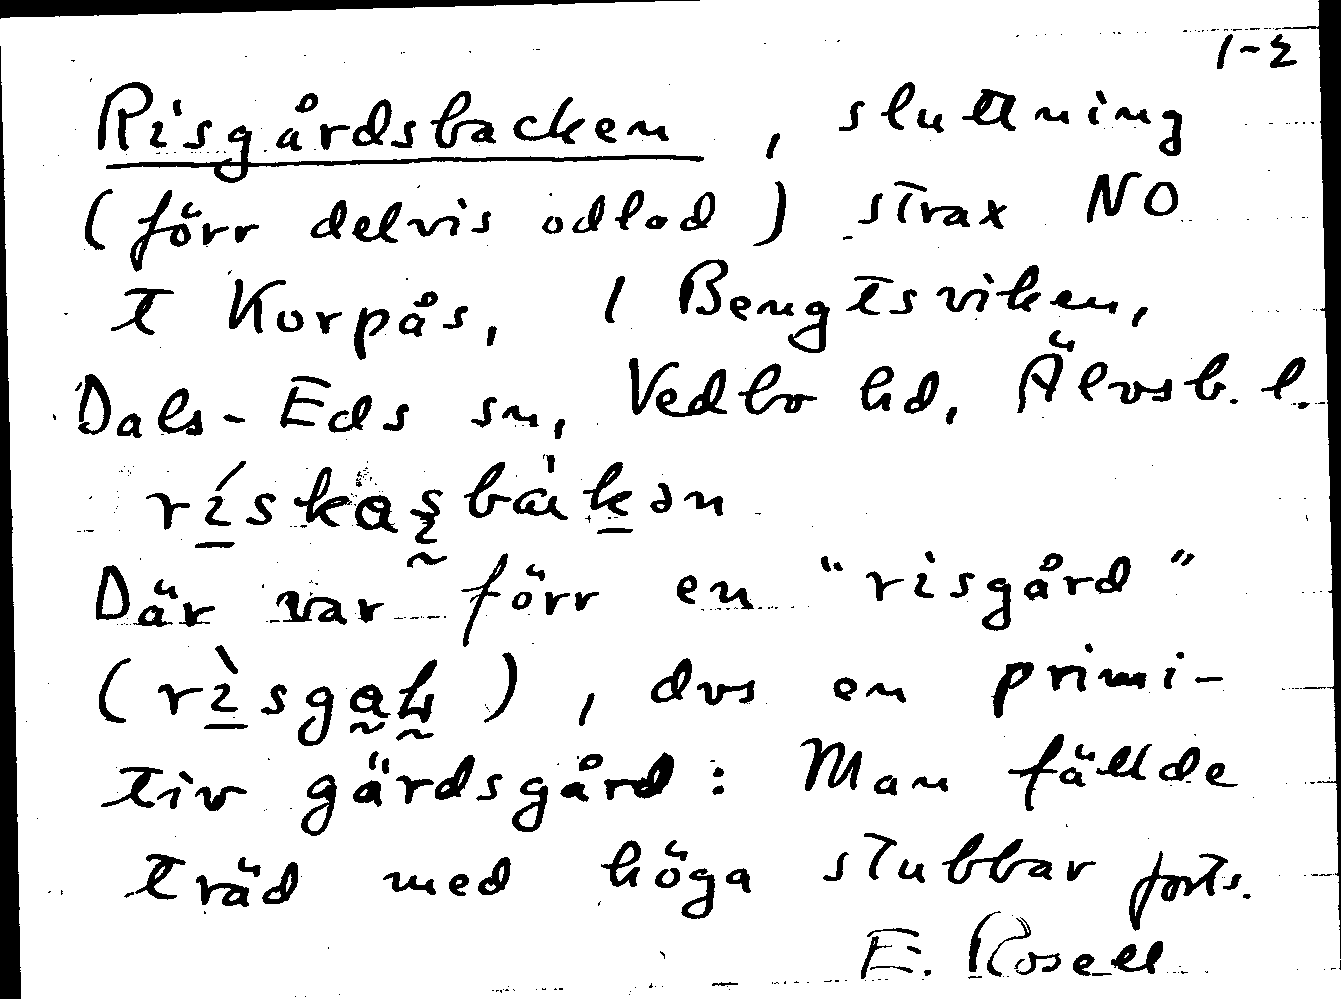 1-2
Risgårdsbacken, sluttning
(förr delvis odlad) strax NO
t Korpås, 1 Bengtsviken,
Dals-Eds sn, Vedbo hd, Älvsb. l.
Där var förr en "risgård"
, dvs en primi-
tiv gärdsgård: Man fällde
träd med höga stubbar forts.
E. Rosell